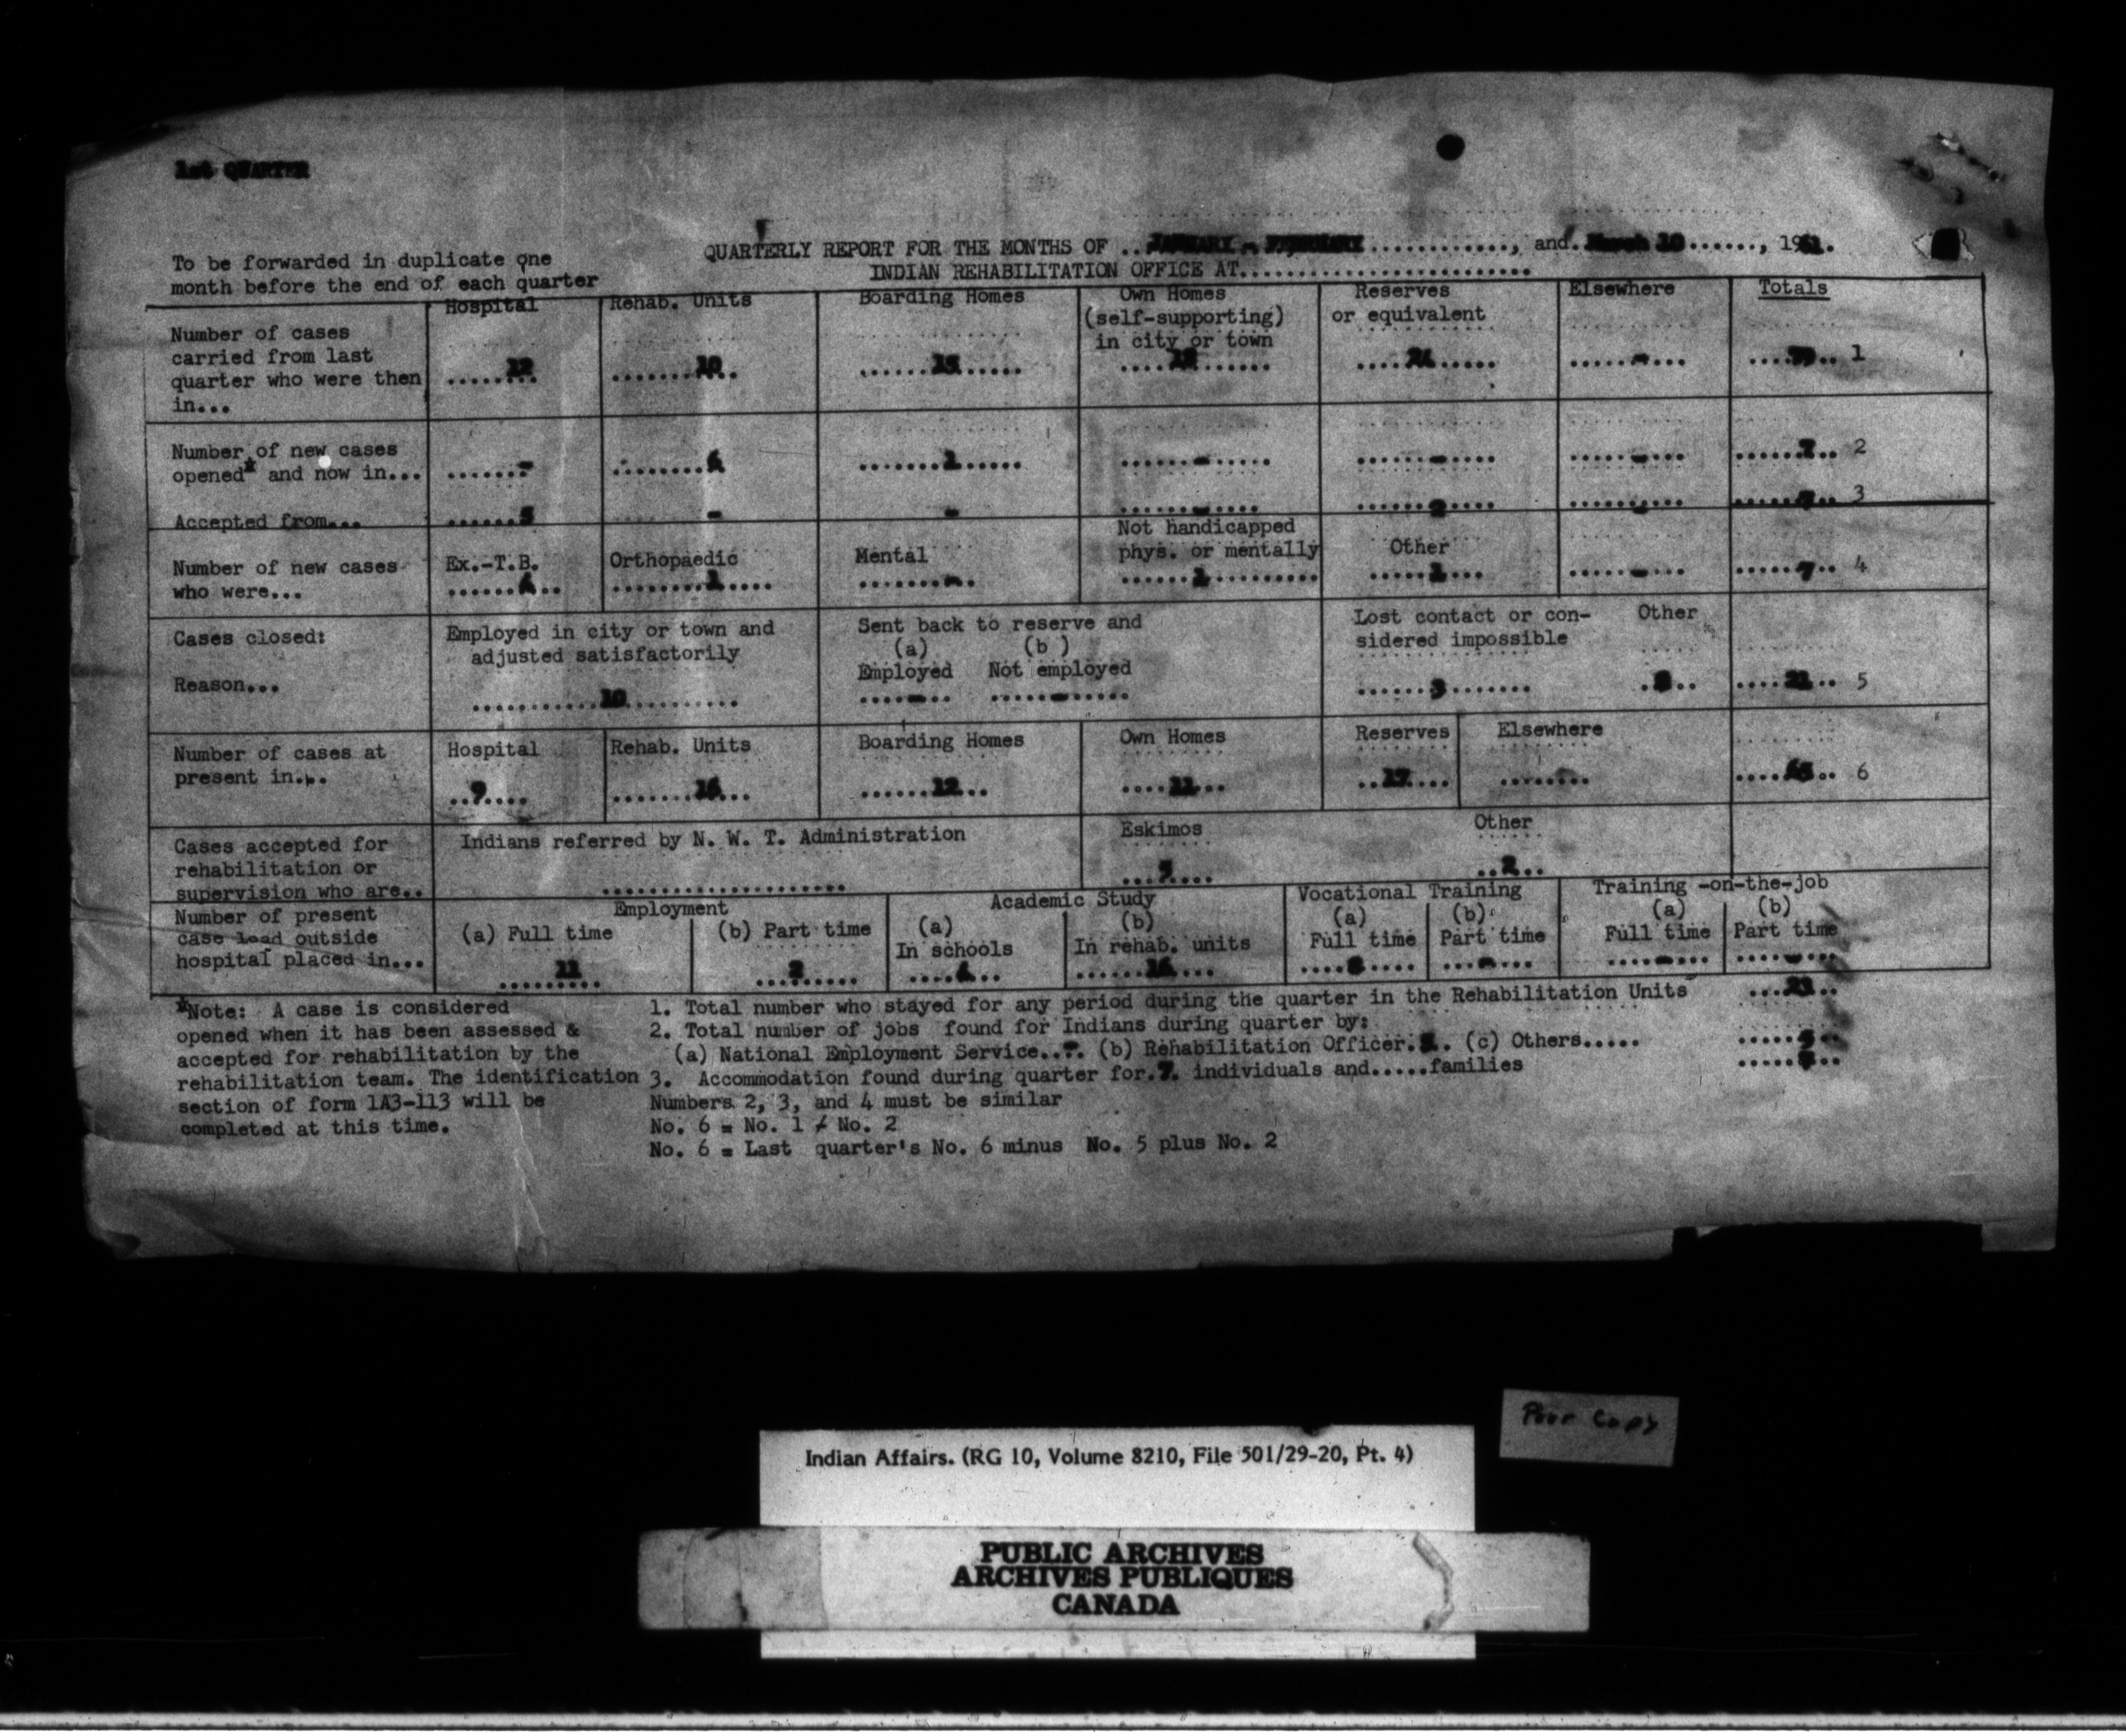 1st QUARTER
To be forwarded in duplicate one
month before the end of each quarter
QUARTERLY REPORT FOR THE MONTHS OF ..JANUARY - FEBRUARY............, and.March 10......, 1961.
INDIAN REHABILITATION OFFICE AT........................
Hospital Rehab. Units Boarding Homes Own Homes (self-supporting) in city or town Reserves or equivalent Elsewhere Totals
Number of cases
carried from last
quarter who were then
in...
12 10 15 18 24 - 79 1
Number of new cases
opened* and now in...
- 6 1 - - - 7 2
Accepted from...
5 - - - 2 - 7 3
Number of new cases
who were...
Ex.-T.B. Orthopaedic Mental Not handicapped phys. or mentally Other
1 - 1 1 - 7 4
Cases closed:
Reason...
Employed in city or town and
adjusted satisfactorily
10
Sent back to reserve and
(a) (b)
Employed Not employed
- -
Lost contact or con-
sidered impossible
3
Other
8
21 5
Number of cases at
present in...
Hospital Rehab. Units Boarding Homes Own Homes Reserves Elsewhere
9 16 12 11 17 65 6
Cases accepted for
rehabilitation or
supervision who are..
Indians referred by N. W. T. Administration
Eskimos
5
Other
2
Number of present
case load outside
hospital placed in...
Employment
(a) Full time (b) Part time
11
Academic Study
(a) (b)
In schools In rehab. units
16
Vocational Training
(a) (b)
Full time Part time
8 -
Training -on-the-job
(a) (b)
Full time Part time
- -
*Note: A case is considered
opened when it has been assessed &
accepted for rehabilitation by the
rehabilitation team. The identification
section of form 1A3-113 will be
completed at this time.
1. Total number who stayed for any period during the quarter in the Rehabilitation Units ...23..
2. Total number of jobs found for Indians during quarter by:
(a) National Employment Service..-. (b) Rehabilitation Officer.5. (c) Others..... .....5..
3. Accommodation found during quarter for.7. individuals and.....families
Numbers 2, 3, and 4 must be similar
No. 6 = No. 1 ≠ No. 2
No. 6 = Last quarter's No. 6 minus No. 5 plus No. 2
Poor Copy
Indian Affairs. (RG 10, Volume 8210, File 501/29-20, Pt. 4)
PUBLIC ARCHIVES
ARCHIVES PUBLIQUES
CANADA